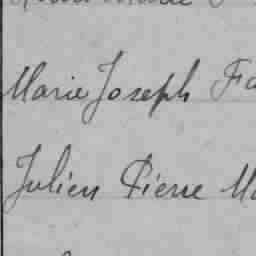 Marie Joseph Fa
Julien Pierre Ma